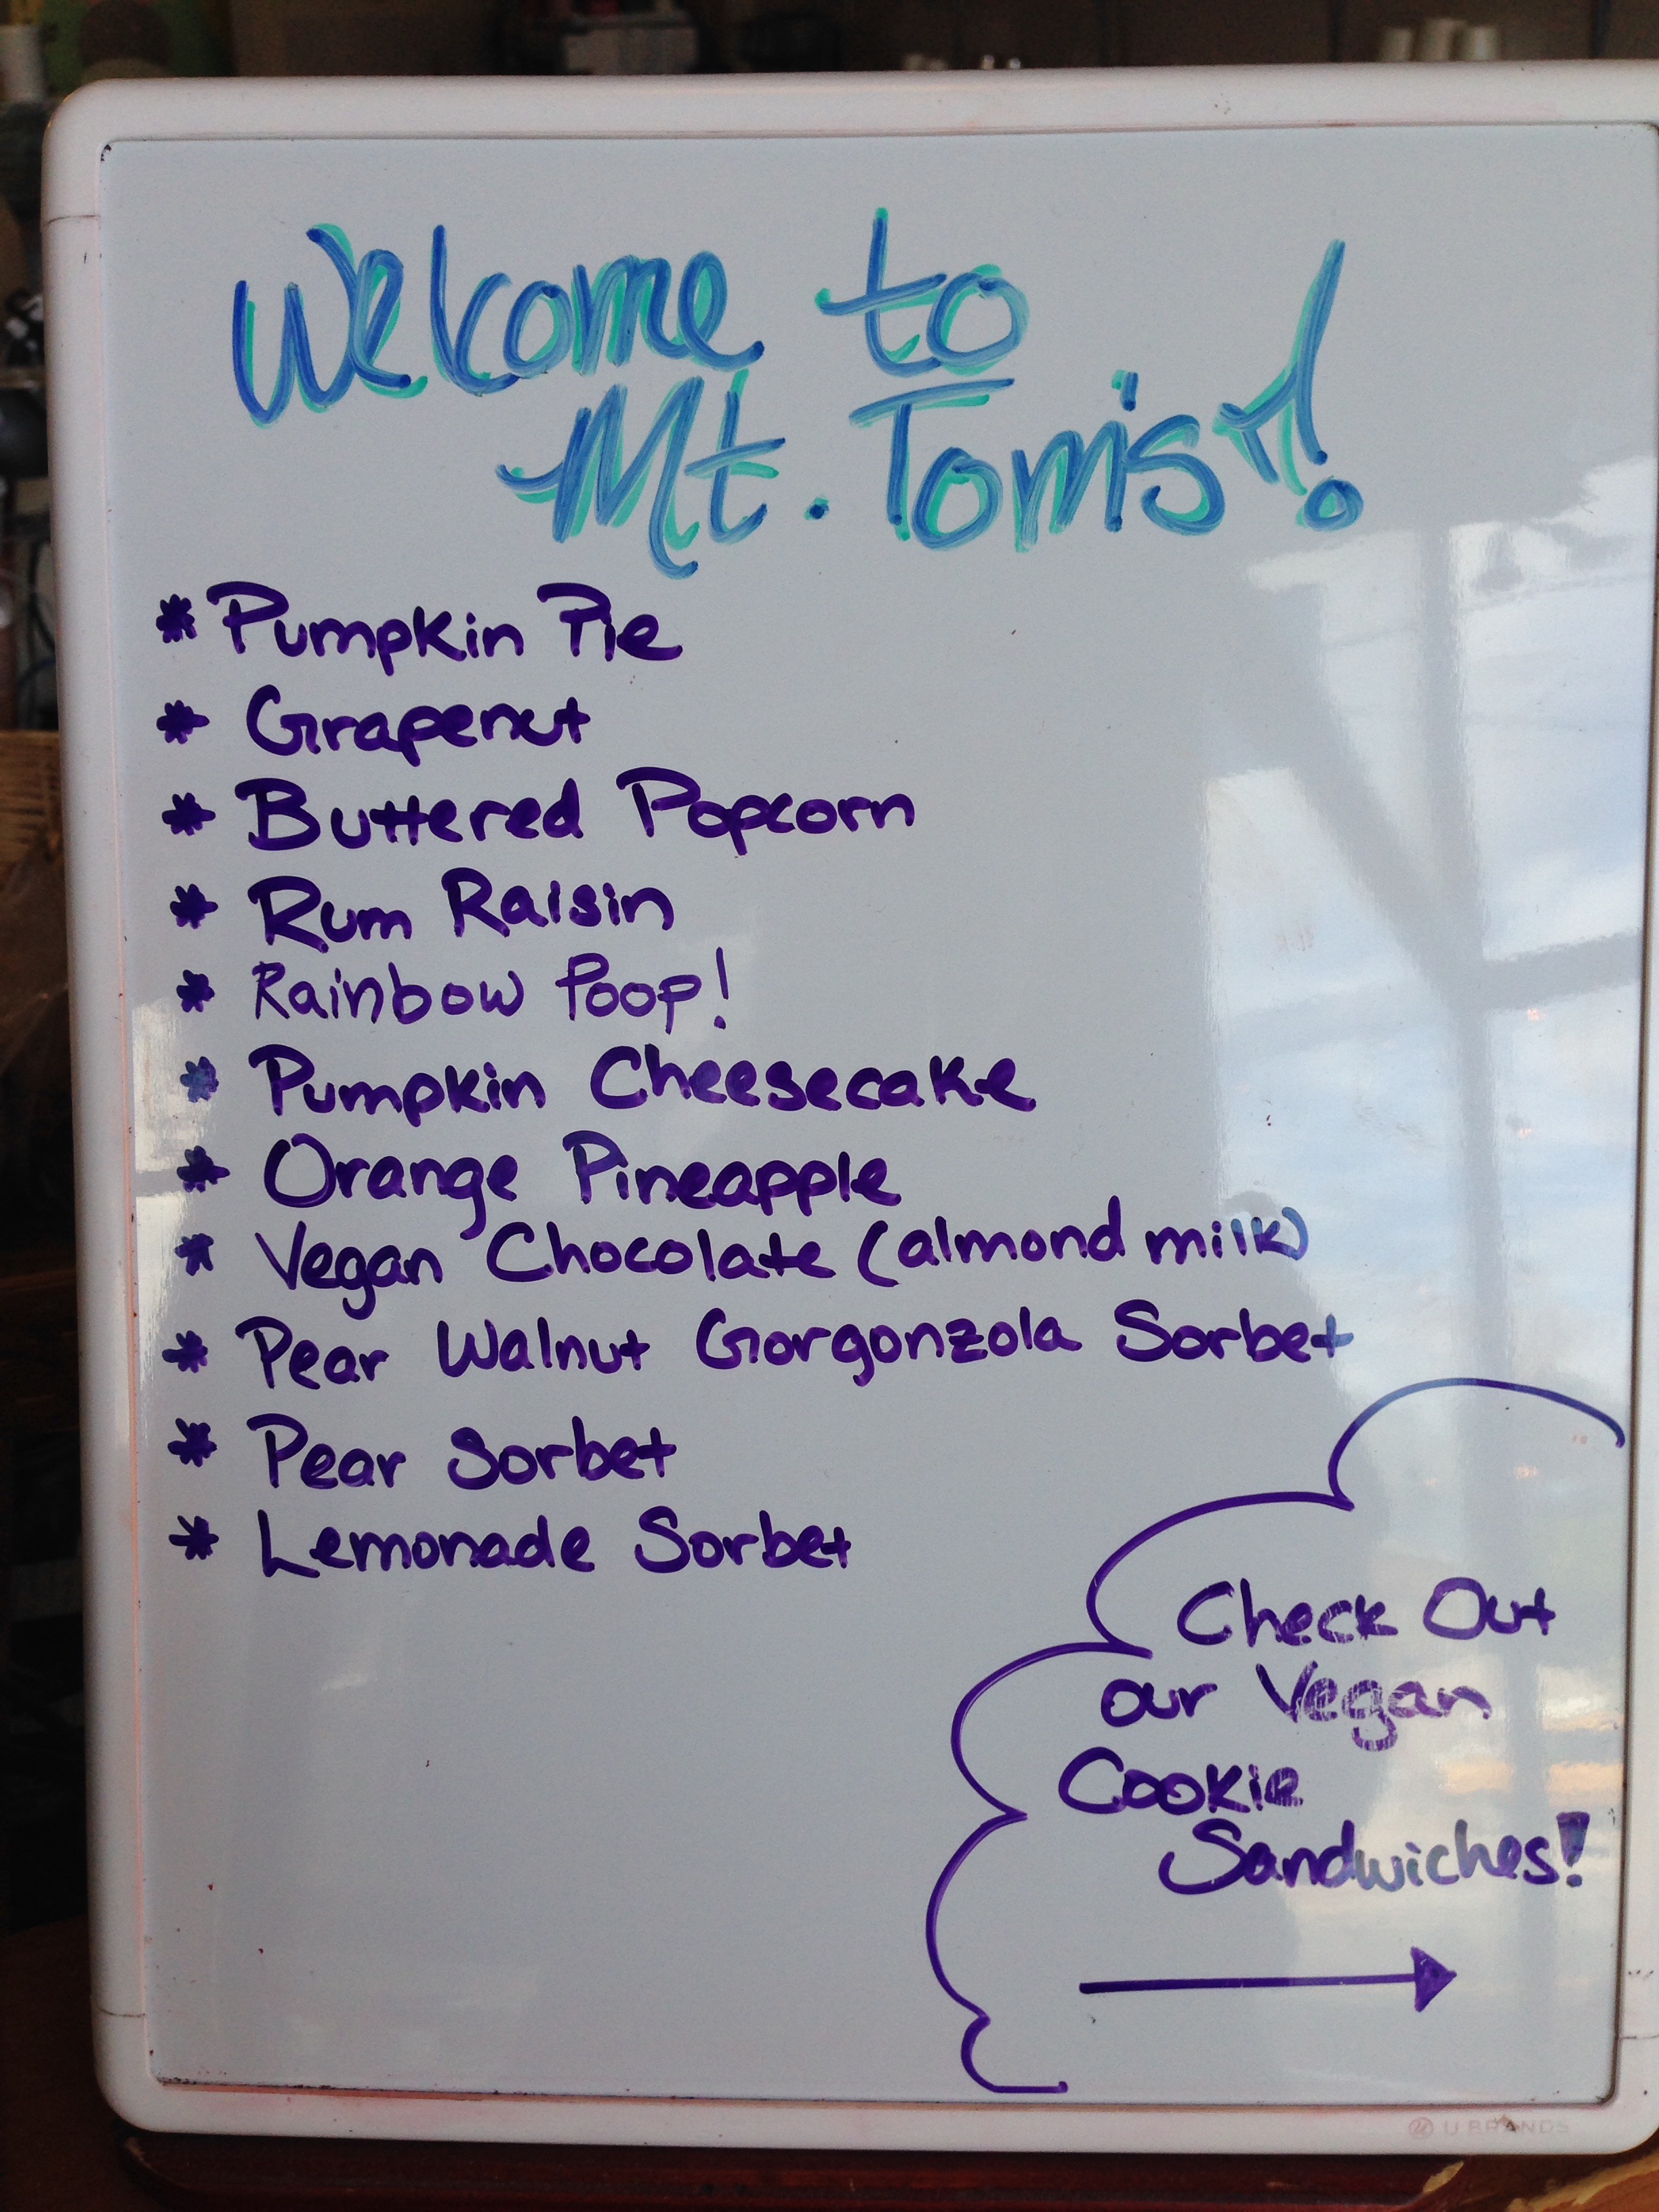 Welcome to
Mt. Tom's!
* Pumpkin Pie
* Grapenut
* Buttered Popcorn
* Rum Raisin
* Rainbow Poop!
* Pumpkin Cheesecake
* Orange Pineapple
* Vegan Chocolate (almond milk)
* Pear Walnut Gorgonzola Sorbet
* Pear Sorbet
* Lemonade Sorbet
Check Out
our Vegan
Cookie
Sandwiches!
U BRANDS